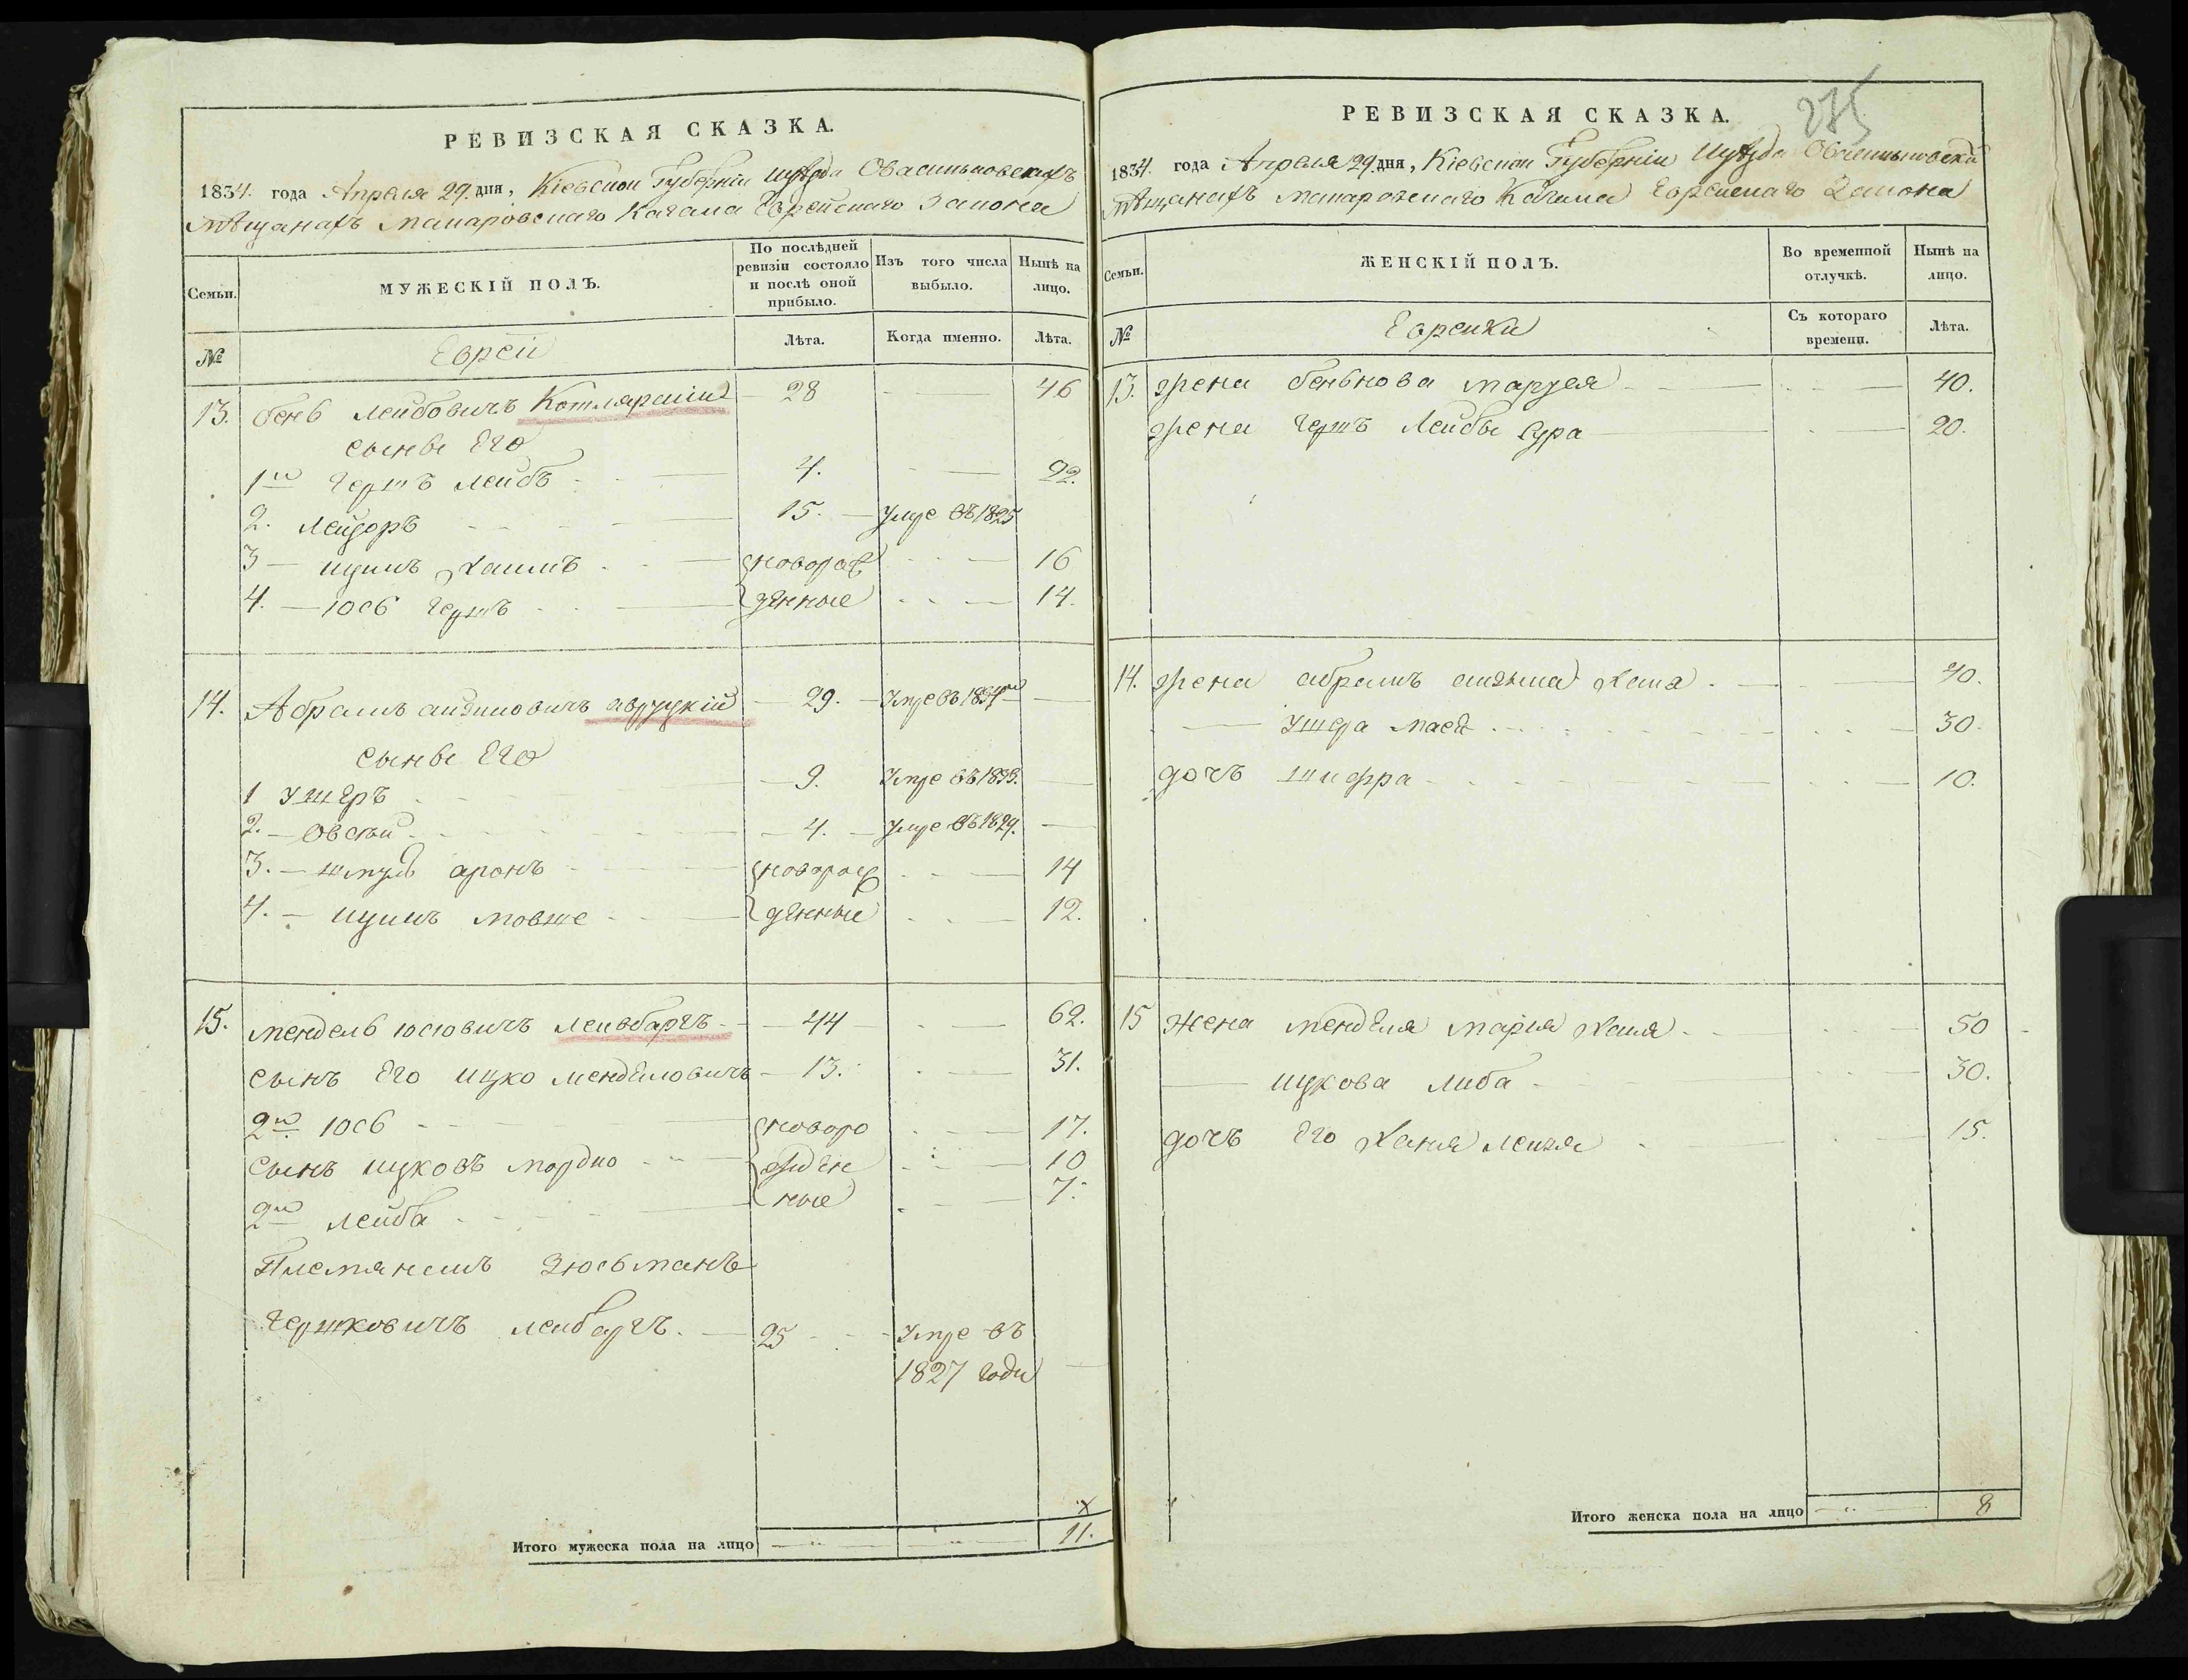 РЕВИЗСКАЯ СКАЗКА.
1834. года Апреля 29. дня, Кіевской Губерніи
мѣщанахъ Макаровскаго Кагала Еврейскаго Закона
Семьи.
МУЖЕСКІЙ ПОЛЪ.
По послѣдней ревизіи состояло и послѣ оной прибыло.
Изъ того числа выбыло.
Нынѣ на лицо.
№
Еврей
Лѣта.
Когда именно.
Лѣта.
13. бень лейбовичъ Котлярскій 28 46
сынвѣ Его
1й гершъ лейбъ 4. 22.
2. лейзоръ 15. Умре въ 1825
3 ицикъ хаимъ новорож 16
4. юсь гершъ денные 14.
14. Абрамъ авруцкій 29. Умре въ
сынвѣ Его
1 ушеръ 9. Умре въ 1833.
2. Овсѣй 4. Умре въ 1829.
3. шмуль аронъ новорож 14
4. ицикъ мовше денные 12.
15. мендель юсювичъ лейвбаргъ 44 62.
сынъ Его ицко менделовичъ 13. 31.
2й юсь новоро 17.
сынъ ицковъ мордко жден 10
2й лейба ные 7.
Племяникъ Зюсьманъ
гершковичъ лейбаргъ. 25 Умре въ
1827 годи
Итого мужеска пола на лицо 11.
275
РЕВИЗСКАЯ СКАЗКА.
1834. года Апреля 29. дня, Кіевской Губерніи
мѣщанахъ Макаровскаго Кагала Еврейскаго Закона
Семьи.
ЖЕНСКІЙ ПОЛЪ.
Во временной отлучкѣ.
Нынѣ на лицо.
№
Еврейки
Съ котораго времени.
Лѣта.
13. жена беньнова 40.
жена гершъ лейбы сура 20.
14. жена абрамъ хая 40.
ушера 30.
дочъ шифра 10.
15 жена менделя марія хая 50
ицкова либа 30.
дочъ Его ханя 15.
Итого женска пола на лицо 8